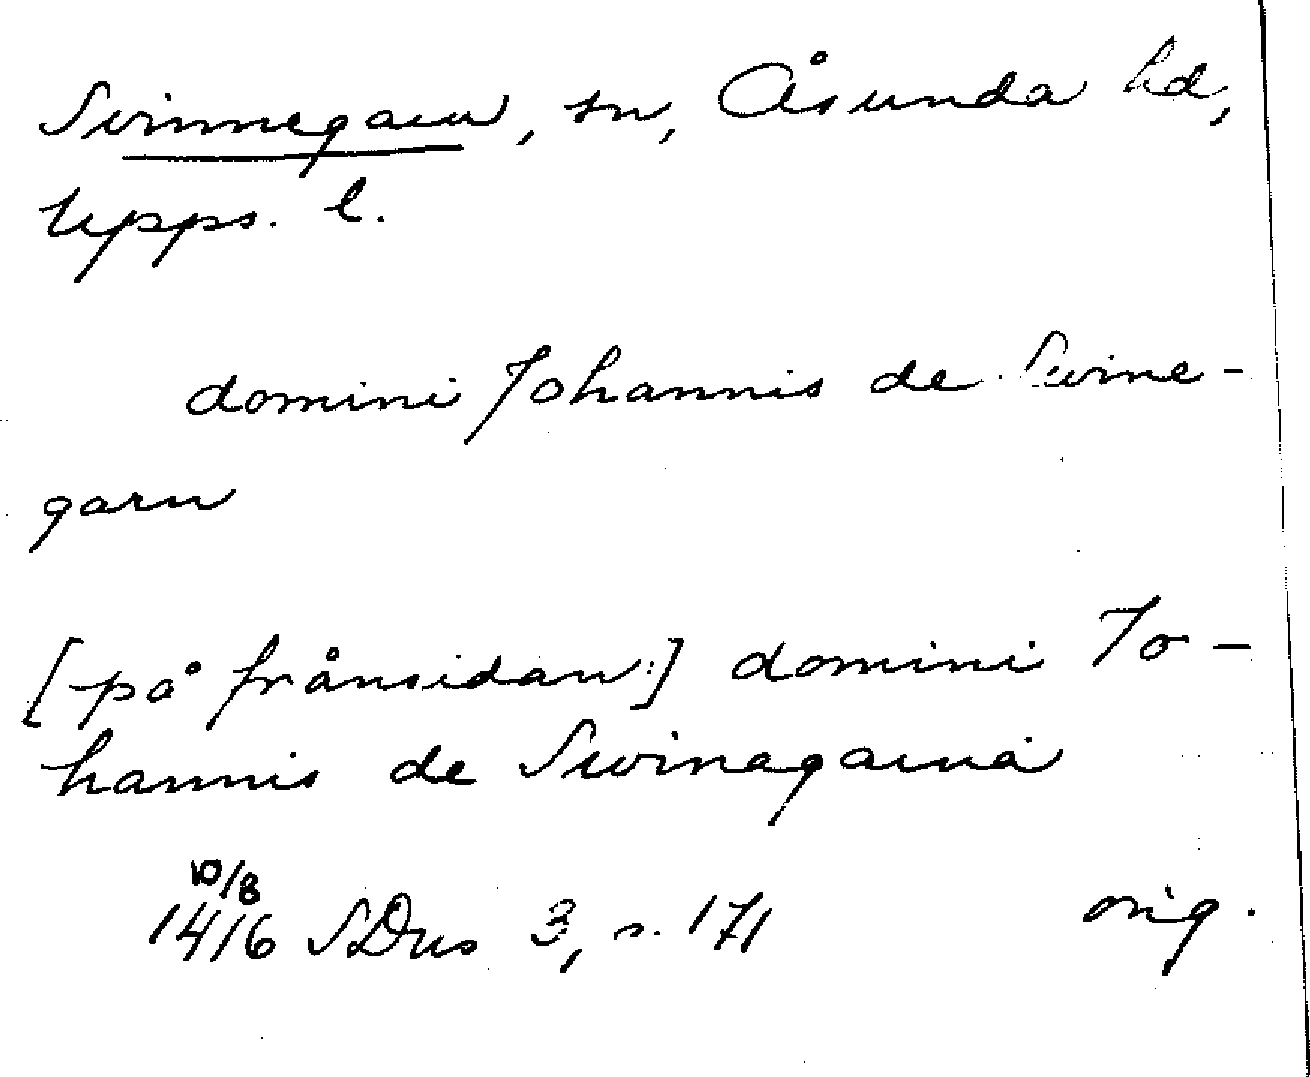 Svinnegarn, sn, Åsunda hd,
Upps. l.
domini Johannis de Swine-
garn
[på frånsidan:] domini Jo-
hannis de Swinagarna
10/8
1416 SDns 3, s. 171 orig.